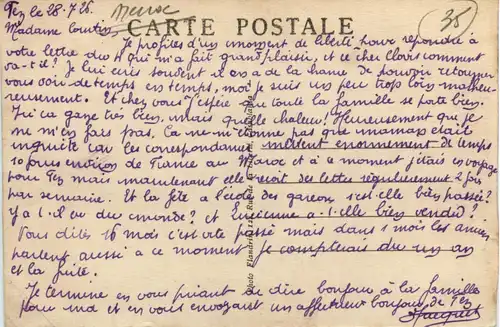 Fez le 28-7-26.
Maroc
35
CARTE POSTALE
Madame
Je profite d'un moment de liberté pour répondre à
votre lettre du 4 qui m'a fait grand plaisir, et ce cher Clovis comment
va-t-il? Je lui écris souvent il en a de la chance de pouvoir retourner
vous voir de temps en temps, moi je suis un peu trop loin malheu-
reusement. Et chez vous j'espère que toute la famille se porte bien.
Ici ca gaze très bien, mais quelle chaleur! Heureusement que je
ne m'en fais pas. Ca ne m'étonne pas que maman était
inquiète car les correspondances mettent enormement de temps
10 jours environ de France au Maroc et à ce moment j'étais en voyage
pour Fez mais maintenant elle reçoit des lettres régulièrement 2 fois
par semaine. Et la fête a l'école des garçon s'est-elle bien passée?
Y a t-il eu du monde? et a-t-elle bien vendu?
Vous dites 16 mois c'est vite passé mais dans 1 mois les anciens
partent aussi a ce moment je compterais du un an
et la fuite.
Je termine en vous priant de dire bonjour à la famille
pour moi et en vous envoyant un affectueux bonjour de Fez
Jacques
Photo Flandrin